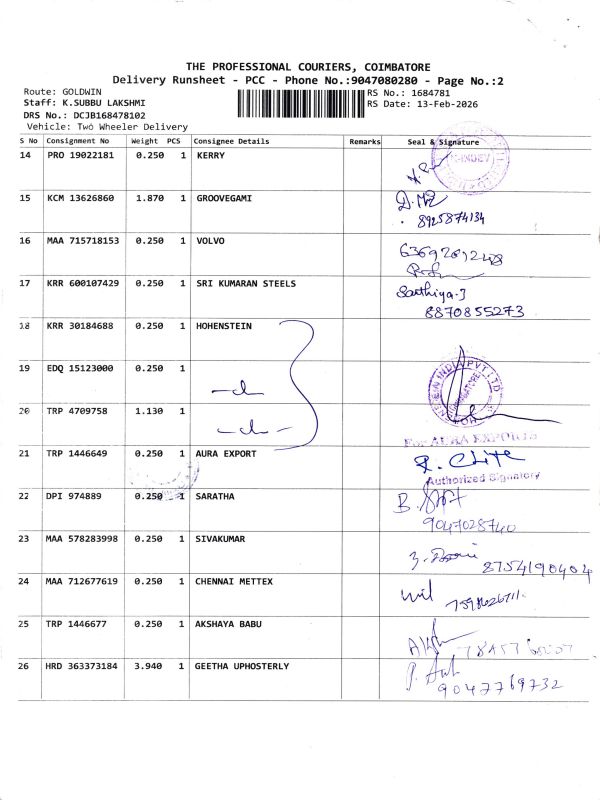 THE PROFESSIONAL COURIERS, COIMBATORE
Delivery Runsheet - PCC - Phone No.:9047080280 - Page No.:2
Route: GOLDWIN
RS No.: 1684781
Staff: K.SUBBU LAKSHMI
RS Date: 13-Feb-2026
DRS No.: DCJB168478102
Vehicle: Two Wheeler Delivery
S No Consignment No Weight PCS Consignee Details Remarks Seal & Signature
14 PRO 19022181 0.250 1 KERRY
15 KCM 13626860 1.870 1 GROOVEGAMI
8925874134
16 MAA 715718153 0.250 1 VOLVO
17 KRR 600107429 0.250 1 SRI KUMARAN STEELS Sathiya.J
8870855273
18 KRR 30184688 0.250 1 HOHENSTEIN
19 EDQ 15123000 0.250 1
20 TRP 4709758 1.130 1
For AURA EXPORTS
21 TRP 1446649 0.250 1 AURA EXPORT
Authorized Signatory
22 DPI 974889 0.250 1 SARATHA
9047028740
23 MAA 578283998 0.250 1 SIVAKUMAR
8754190404
24 MAA 712677619 0.250 1 CHENNAI METTEX
25 TRP 1446677 0.250 1 AKSHAYA BABU
26 HRD 363373184 3.940 1 GEETHA UPHOSTERLY
9047769732